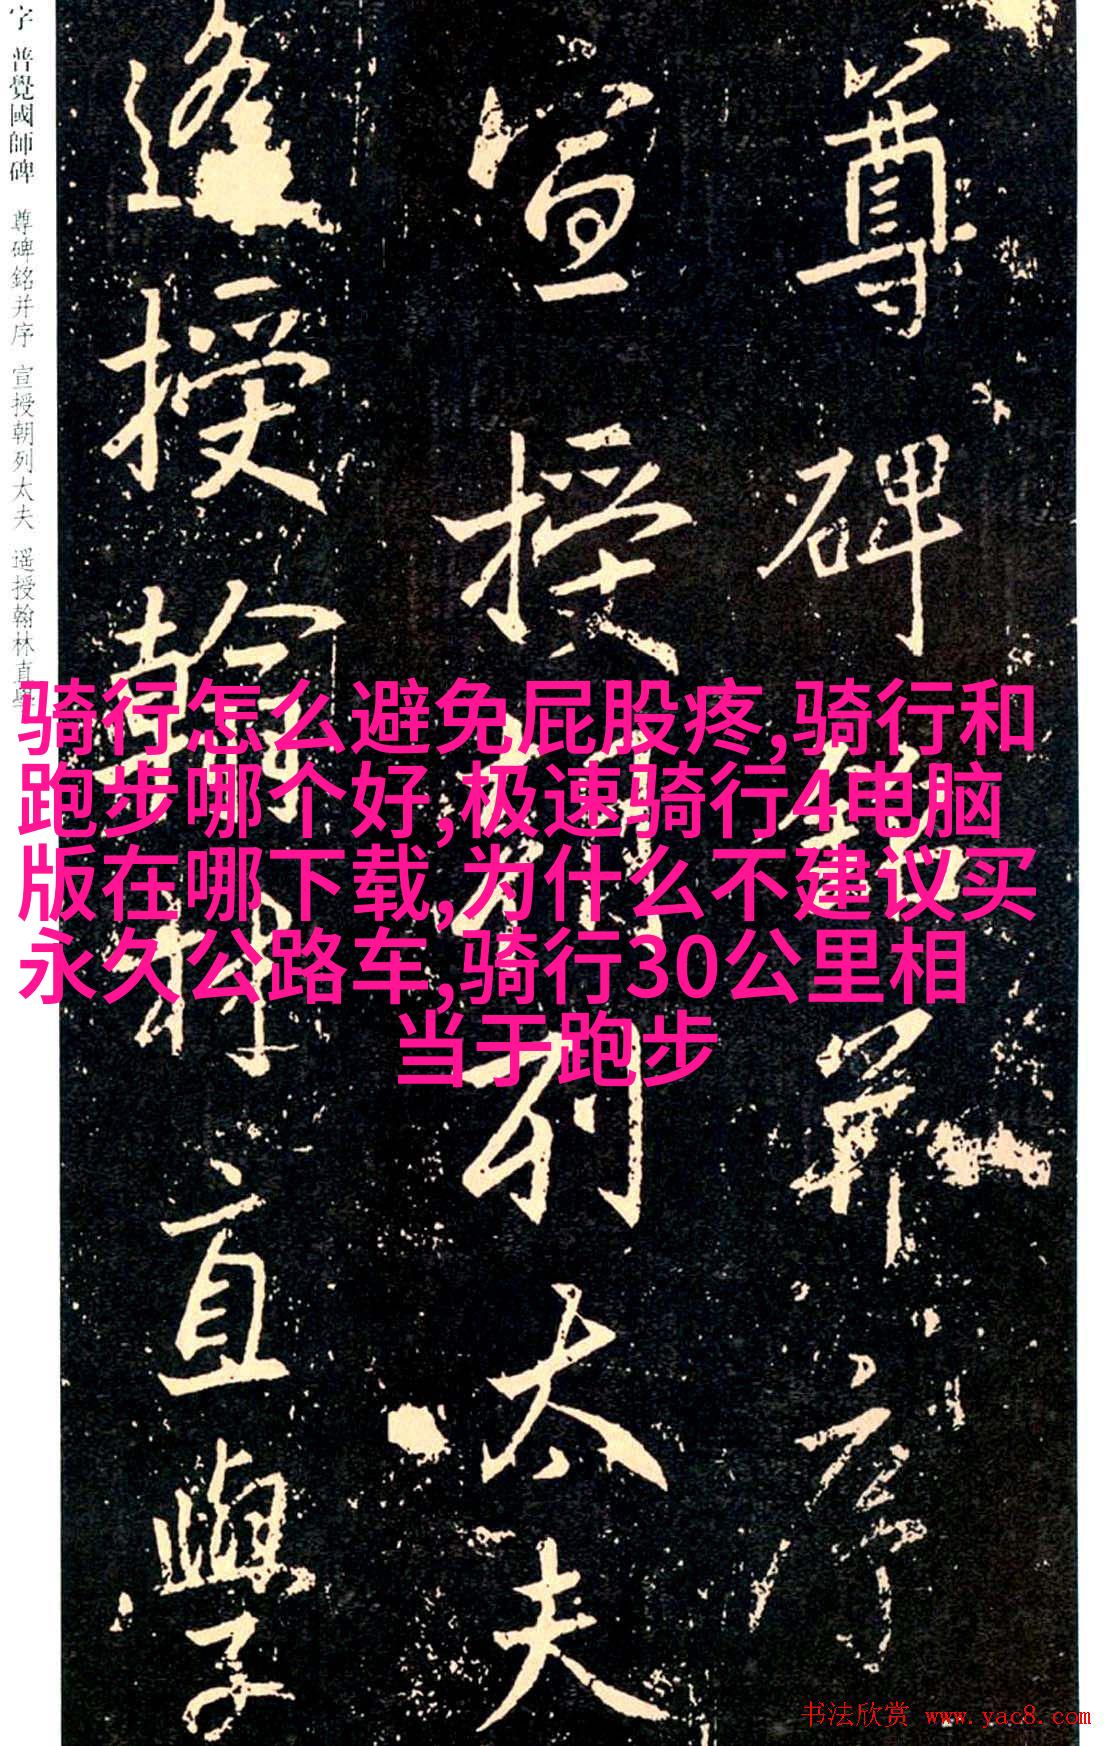 字 普覺國師碑 尊碑銘并序 宣授朝列太夫 遥授翰林直學
尊碑銘并序
宣授朝列太夫
遥授翰林直學
骑行怎么避免屁股疼,骑行和
跑步哪个好,极速骑行4电脑
版在哪下载,为什么不建议买
永久公路车,骑行30公里相
当于跑步
书法欣赏 www.yac8.com